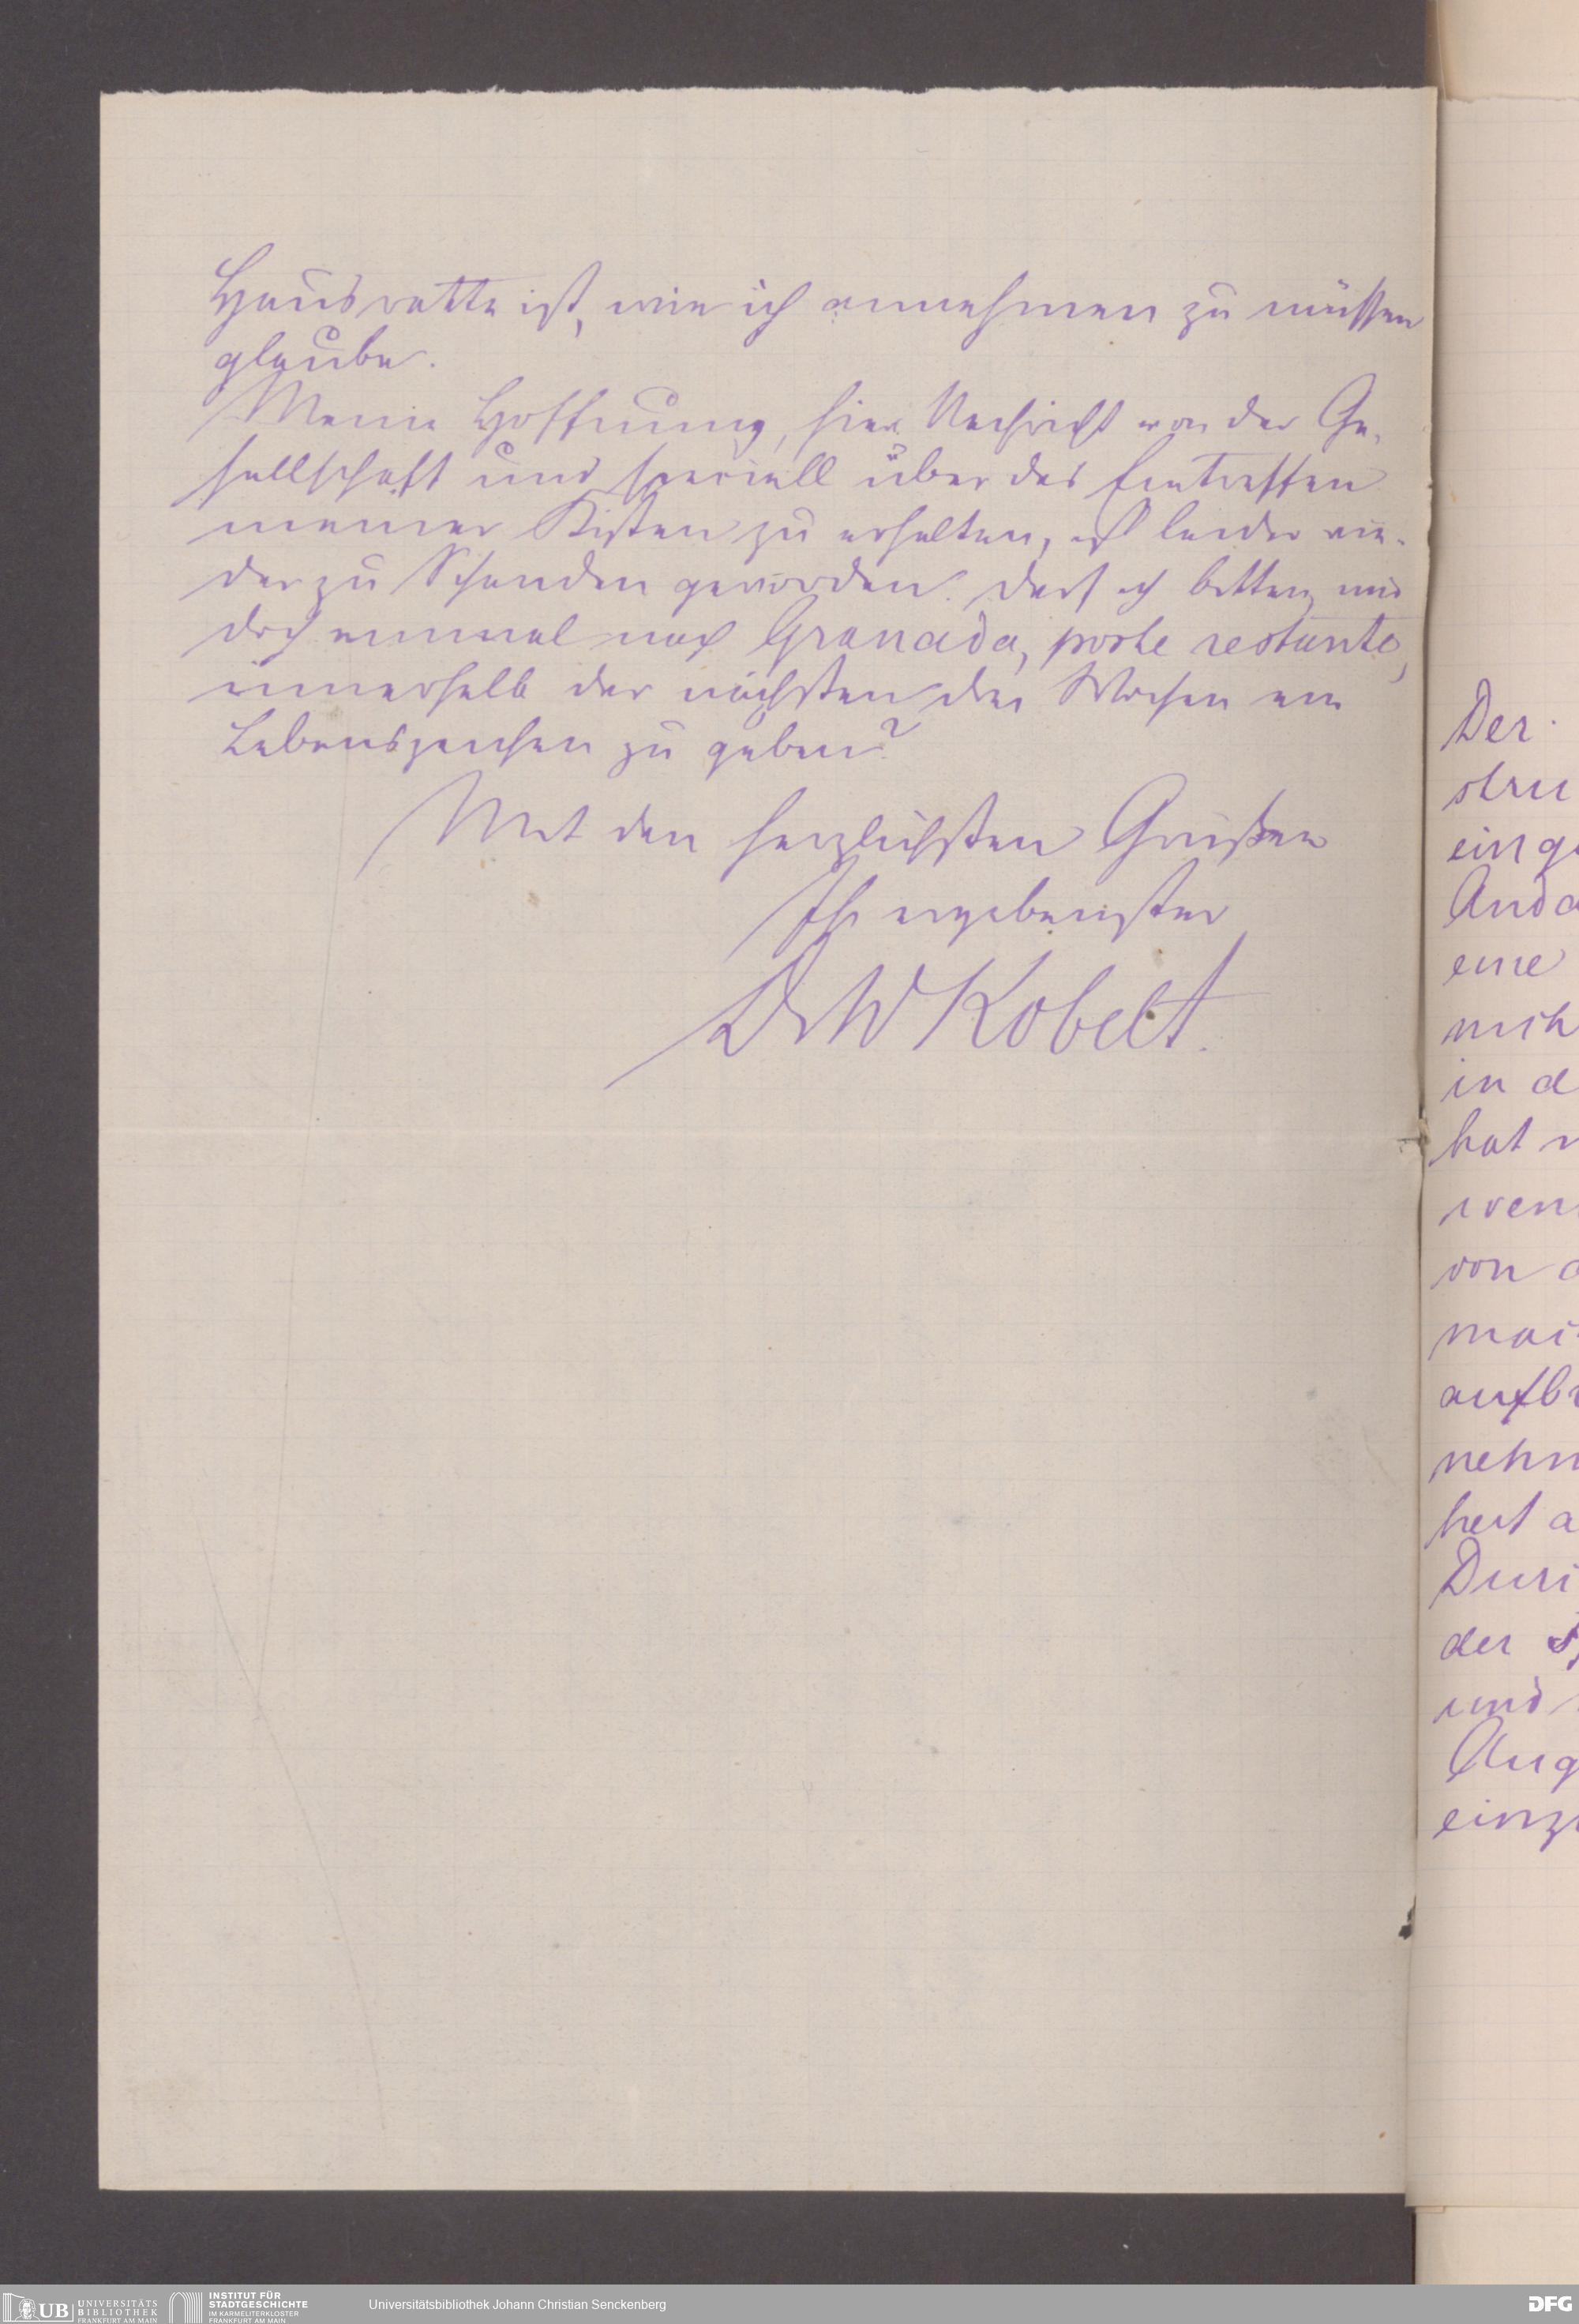 Hausratte ist, wie ich annehmen zu müssen
glaube.
Meine Hoffnung, hier Nachricht von der Ge-
sellschaft und speciell über das Eintreffen
meiner Kisten zu erhalten, ist leider wie-
der zu Schanden geworden. Darf ich bitten, mir
doch einmal nach Granada, poste restante,
innerhalb der nächsten drei Wochen ein
Lebenszeichen zu geben?
Mit den herzlichsten Grüßen
Ihr ergebenster
Dr W Kobelt.
Der
stru
ein ge
Anda
eine
nich
in d
hat
wen
von
mai
aufbr
nehm
heit a
Duri
der
und
Aug
einz
UB UNIVERSITÄTS
BIBLIOTHEK
FRANKFURT AM MAIN
INSTITUT FÜR
STADTGESCHICHTE
IM KARMELITERKLOSTER
FRANKFURT AM MAIN
Universitätsbibliothek Johann Christian Senckenberg
DFG